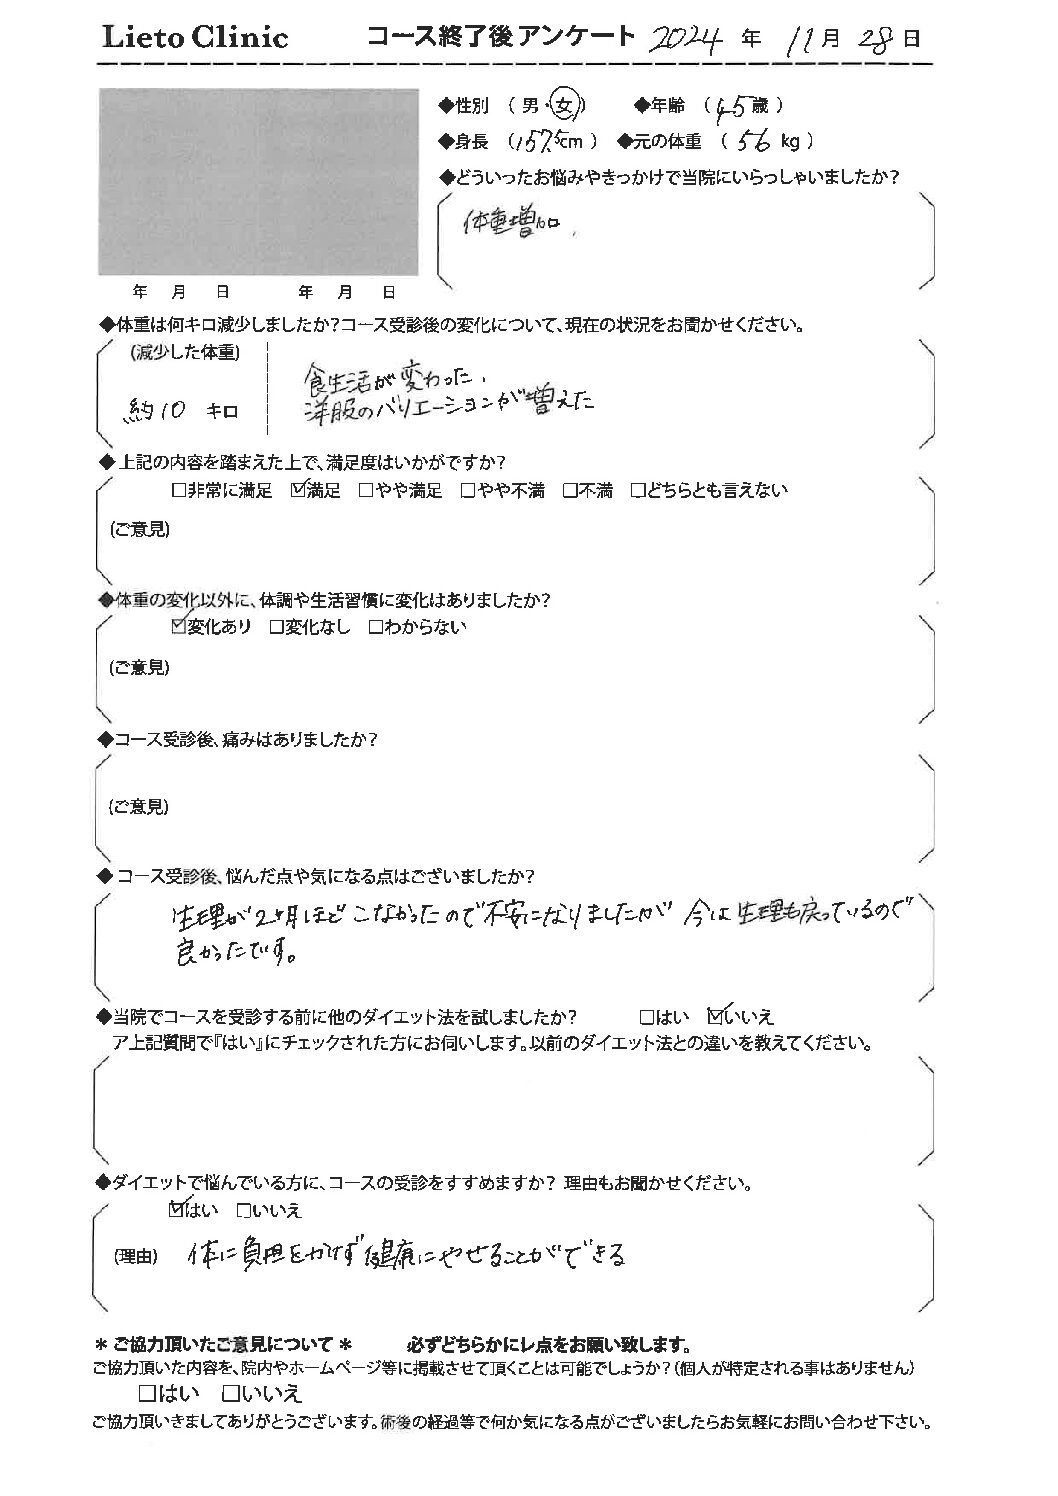 Lieto Clinic コース終了後アンケート 2024 年 11月 28日
◆性別 (男・女) ◆年齢 (45歳)
◆身長 (157.5cm) ◆元の体重 (56 kg)
◆どういったお悩みやきっかけで当院にいらっしゃいましたか?
体重増加
年 月 日 年 月 日
◆体重は何キロ減少しましたか?コース受診後の変化について、現在の状況をお聞かせください。
(減少した体重)
約10 キロ
食生活が変わった、
洋服のバリエーションが増えた
◆上記の内容を踏まえた上で、満足度はいかがですか?
□非常に満足 ☑満足 □やや満足 □やや不満 □不満 □どちらとも言えない
(ご意見)
◆体重の変化以外に、体調や生活習慣に変化はありましたか?
☑変化あり □変化なし □わからない
(ご意見)
◆コース受診後、痛みはありましたか?
(ご意見)
◆コース受診後、悩んだ点や気になる点はございましたか?
生理が2ヶ月ほどこなかったので不安になりましたが 今は生理も戻っているので
良かったです。
◆当院でコースを受診する前に他のダイエット法を試しましたか? □はい ☑いいえ
ア上記質問で『はい』にチェックされた方にお伺いします。以前のダイエット法との違いを教えてください。
◆ダイエットで悩んでいる方に、コースの受診をすすめますか? 理由もお聞かせください。
☑はい □いいえ
(理由) 体に負担をかけず健康にやせることができる
* ご協力頂いたご意見について * 必ずどちらかにレ点をお願い致します。
ご協力頂いた内容を、院内やホームページ等に掲載させて頂くことは可能でしょうか?(個人が特定される事はありません)
□はい □いいえ
ご協力頂いきましてありがとうございます。術後の経過等で何か気になる点がございましたらお気軽にお問い合わせ下さい。